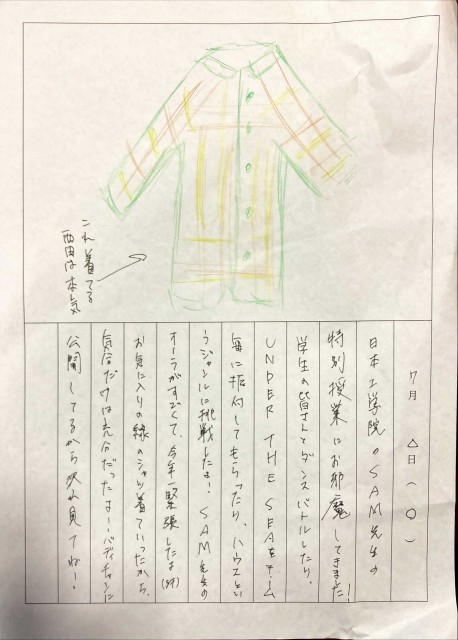 これ着てる
西田は本気
7月 △日(〇)
日本工学院のSAM先生の
特別授業にお邪魔してきました!
学生の皆さんとダンスバトルしたり、
UNDER THE SEAをチーム
毎に振付してもらったり、ハウスとい
うジャンルに挑戦したよー、SAM先生の
オーラがすごくて、今年一緊張したよ(汗)
お気に入りの緑のシャツ着ていったから、
気分だけは充分だったよー!バディチャンに
公開してるから次ね見てねー!